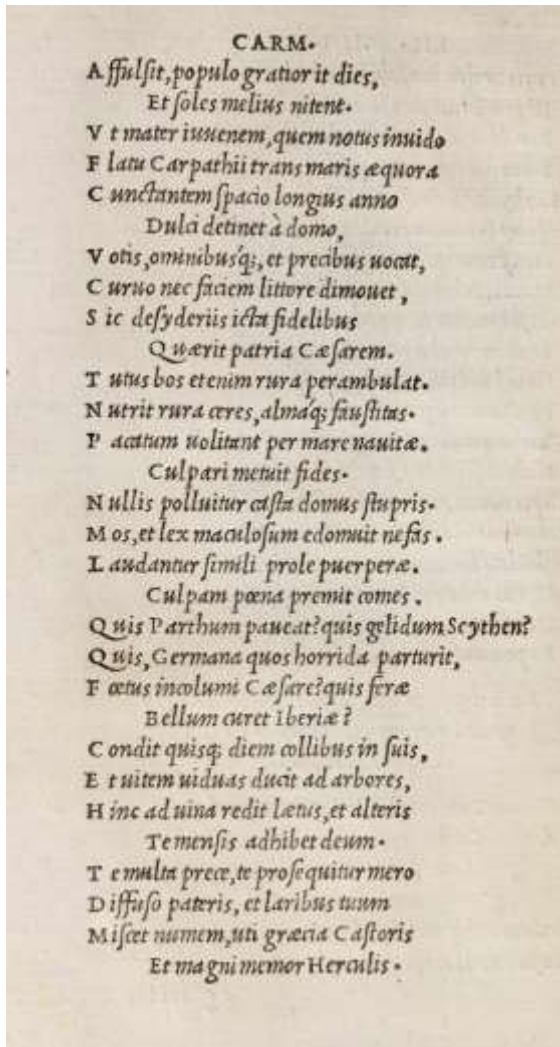 CARM.
Affulsit, populo gratior it dies,
Et soles melius nitent.
Vt mater iuuenem, quem notus inuido
Flatu Carpathii trans maris æquora
Cunctantem spacio longius annuo
Dulci detinet à domo,
Votis, ominibusq́;, et precibus uocat,
Curuo nec faciem littore dimouet,
Sic desyderiis icta fidelibus
Quærit patria Cæsarem.
Tutus bos etenim rura perambulat.
Nutrit rura ceres, almaq́; faustitas.
Pacatum uolitant per mare nauitæ.
Culpari metuit fides.
Nullis polluitur casta domus stupris.
Mos, et lex maculosum edomuit nefas.
Laudantur simili prole puerperæ.
Culpam pœna premit comes.
Quis Parthum paueat? quis gelidum Scythen?
Quis, Germana quos horrida parturit,
Fœtus incolumi Cæsare? quis feræ
Bellum curet Iberiæ?
Condit quisq; diem collibus in suis,
Et uitem uiduas ducit ad arbores,
Hinc ad uina redit lætus, et alteris
Te mensis adhibet deum.
Te multa prece, te prosequitur mero
Diffuso pateris, et laribus tuum
Miscet numen, uti græcia Castoris
Et magni memor Herculis.